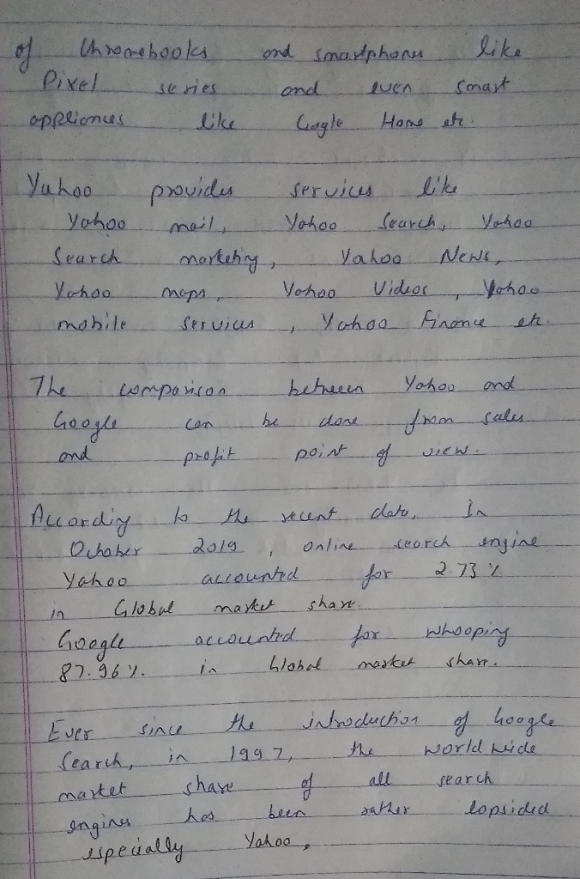 of Chromebooks and smartphones like
Pixel series and even smart
appliances like Gogle Home etc.
Yahoo provides services like
Yahoo mail, Yahoo Search, Yahoo
Search marketing, Yahoo News,
Yahoo maps, Yahoo Videos, Yahoo
mobile services, Yahoo Finance etc.
The comparison between Yahoo and
Google can be done from sales
and profit point of view.
According to the recent data, In
October 2019, online search engine
Yahoo accounted for 2.73 %
in Global market share.
Google accounted for whooping
87.96 %. in Global market share.
Ever since the introduction of Google
Search, in 1997, the world wide
market share of all search
engines has been rather lopsided
especially Yahoo,